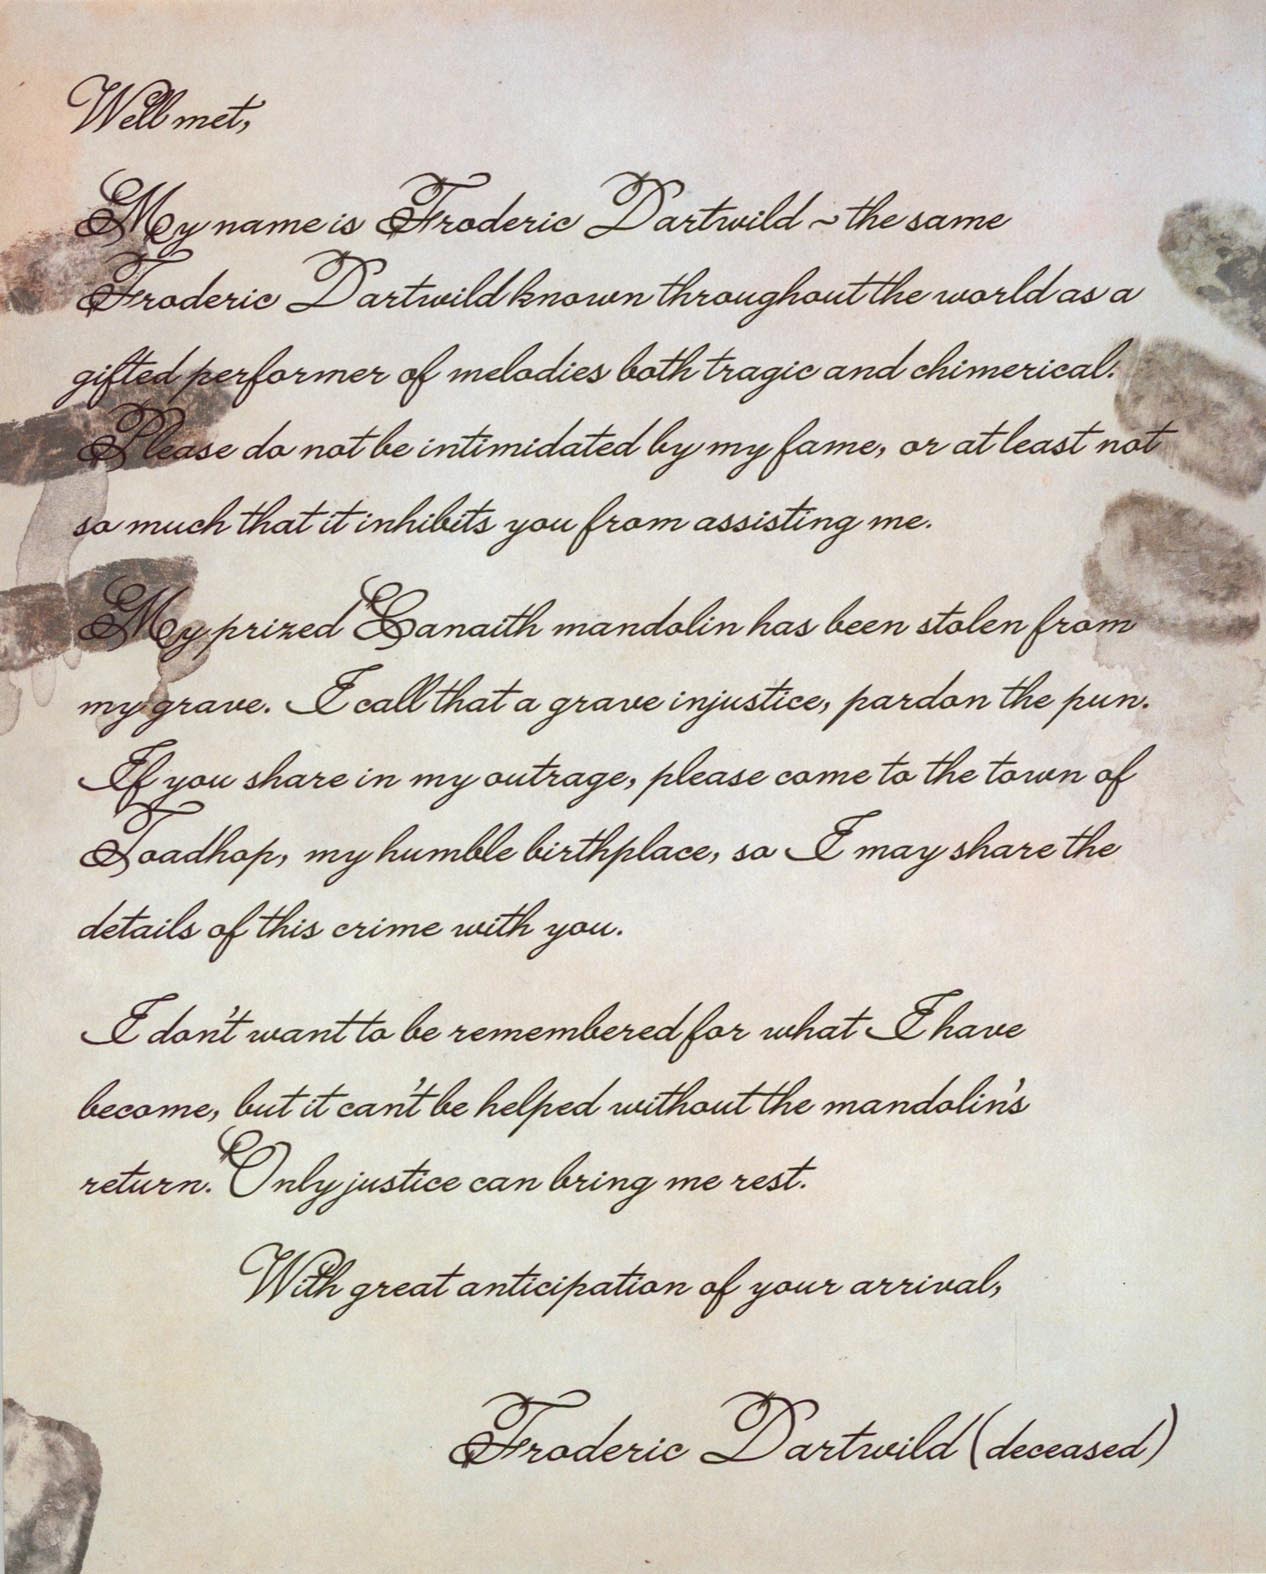 Well met,
My name is Froderic Dartwild ~ the same
Froderic Dartwild known throughout the world as a
gifted performer of melodies both tragic and chimerical.
Please do not be intimidated by my fame, or at least not
so much that it inhibits you from assisting me.
My prized Canaith mandolin has been stolen from
my grave. I call that a grave injustice, pardon the pun.
If you share in my outrage, please come to the town of
Toadhop, my humble birthplace, so I may share the
details of this crime with you.
I don't want to be remembered for what I have
become, but it can't be helped without the mandolin's
return. Only justice can bring me rest.
With great anticipation of your arrival,
Froderic Dartwild (deceased)